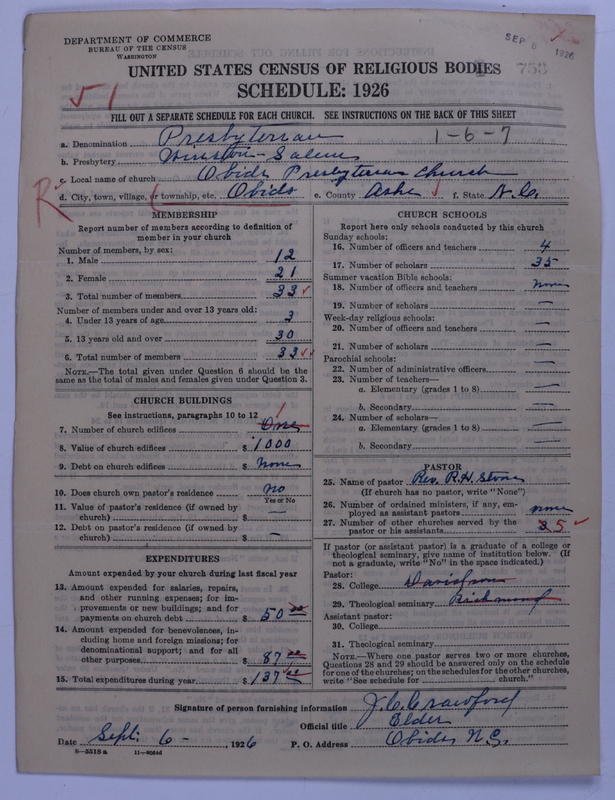 DEPARTMENT OF COMMERCE
BUREAU OF THE CENSUS
WASHINGTON
SEP 8 1926
753
UNITED STATES CENSUS OF RELIGIOUS BODIES
SCHEDULE: 1926
51
FILL OUT A SEPARATE SCHEDULE FOR EACH CHURCH. SEE INSTRUCTIONS ON THE BACK OF THIS SHEET
a. Denomination Presbyterian 1-6-7
b. Presbytery Winston-Salem
c. Local name of church Obids Presbyterian Church
R
d. City, town, village, or township, etc. Obids e. County Ashe f. State N.C.
MEMBERSHIP
Report number of members according to definition of
member in your church
Number of members, by sex:
1. Male 12
2. Female 21
3. Total number of members 33
Number of members under and over 13 years old:
4. Under 13 years of age 3
5. 13 years old and over 30
6. Total number of members 33
NOTE.—The total given under Question 6 should be
same as the total of males and females given under Question 3.
CHURCH BUILDINGS
See instructions, paragraphs 10 to 12
7. Number of church edifices One 1
8. Value of church edifices $ 1000
9. Debt on church edifices $ None
10. Does church own pastor's residence No
Yes or No
11. Value of pastor's residence (if owned by
church) $ —
12. Debt on pastor's residence (if owned by
church) $ —
EXPENDITURES
Amount expended by your church during last fiscal year
13. Amount expended for salaries, repairs,
and other running expenses; for im-
provements or new buildings; and for
payments on church debt $ 50 00
14. Amount expended for benevolences, in-
cluding home and foreign missions; for
denominational support; and for all
other purposes $ 87 00
15. Total expenditures during year $ 137 00
CHURCH SCHOOLS
Report here only schools conducted by this church
Sunday schools:
16. Number of officers and teachers 4
17. Number of scholars 35
Summer vacation Bible schools:
18. Number of officers and teachers none
19. Number of scholars —
Week-day religious schools:
20. Number of officers and teachers —
21. Number of scholars —
Parochial schools:
22. Number of administrative officers —
23. Number of teachers—
a. Elementary (grades 1 to 8) —
b. Secondary —
24. Number of scholars—
a. Elementary (grades 1 to 8) —
b. Secondary —
PASTOR
25. Name of pastor Rev. R.H. Stone
(If church has no pastor, write "None")
26. Number of ordained ministers, if any, em-
ployed as assistant pastors none
27. Number of other churches served by the
pastor or his assistants 5
If pastor (or assistant pastor) is a graduate of a college or
theological seminary, give name of institution below. (If
not a graduate, write "No" in the space indicated.)
Pastor:
28. College Davidson
29. Theological seminary Richmond
Assistant pastor:
30. College
31. Theological seminary
NOTE.—Where one pastor serves two or more churches,
Questions 28 and 29 should be answered only on the schedule
for one of the churches; on the schedules for the other churches,
write "See schedule for church."
Signature of person furnishing information J.C. Crawford
Official title Elder
Date Sept. 6 -, 1926 P. O. Address Obids N.C.
8—5518 a